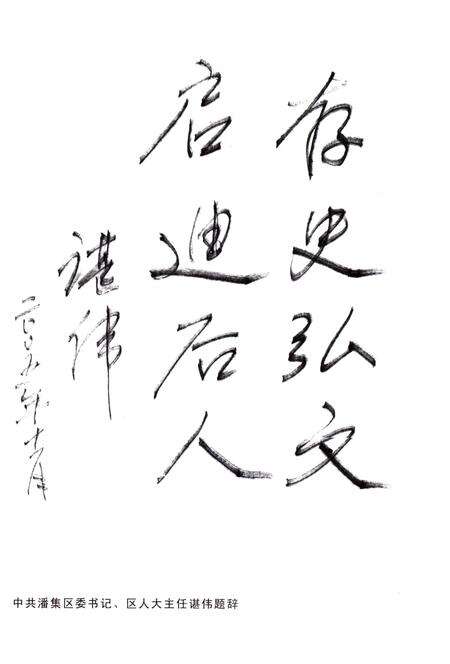 存史弘文
启迪后人
谌伟
二〇〇九年十一月
中共潘集区委书记、区人大主任谌伟题辞